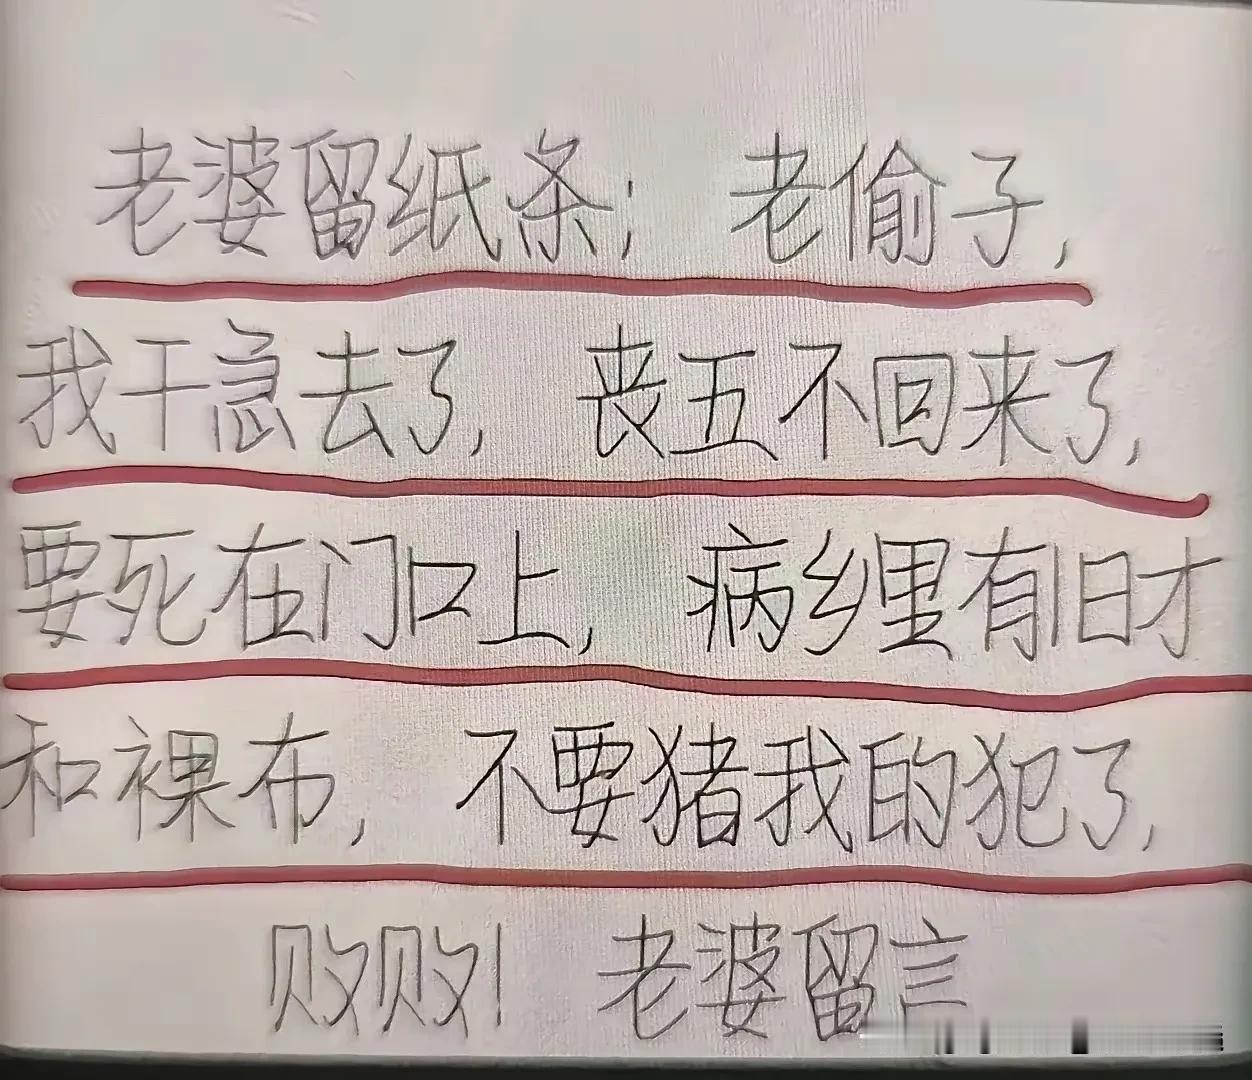 老婆留纸条； 老偷子，
我干急去了， 丧五不回来了，
要死在门口上， 病乡里有旧才
和裸布， 不要猪我的犯了，
败败！ 老婆留言